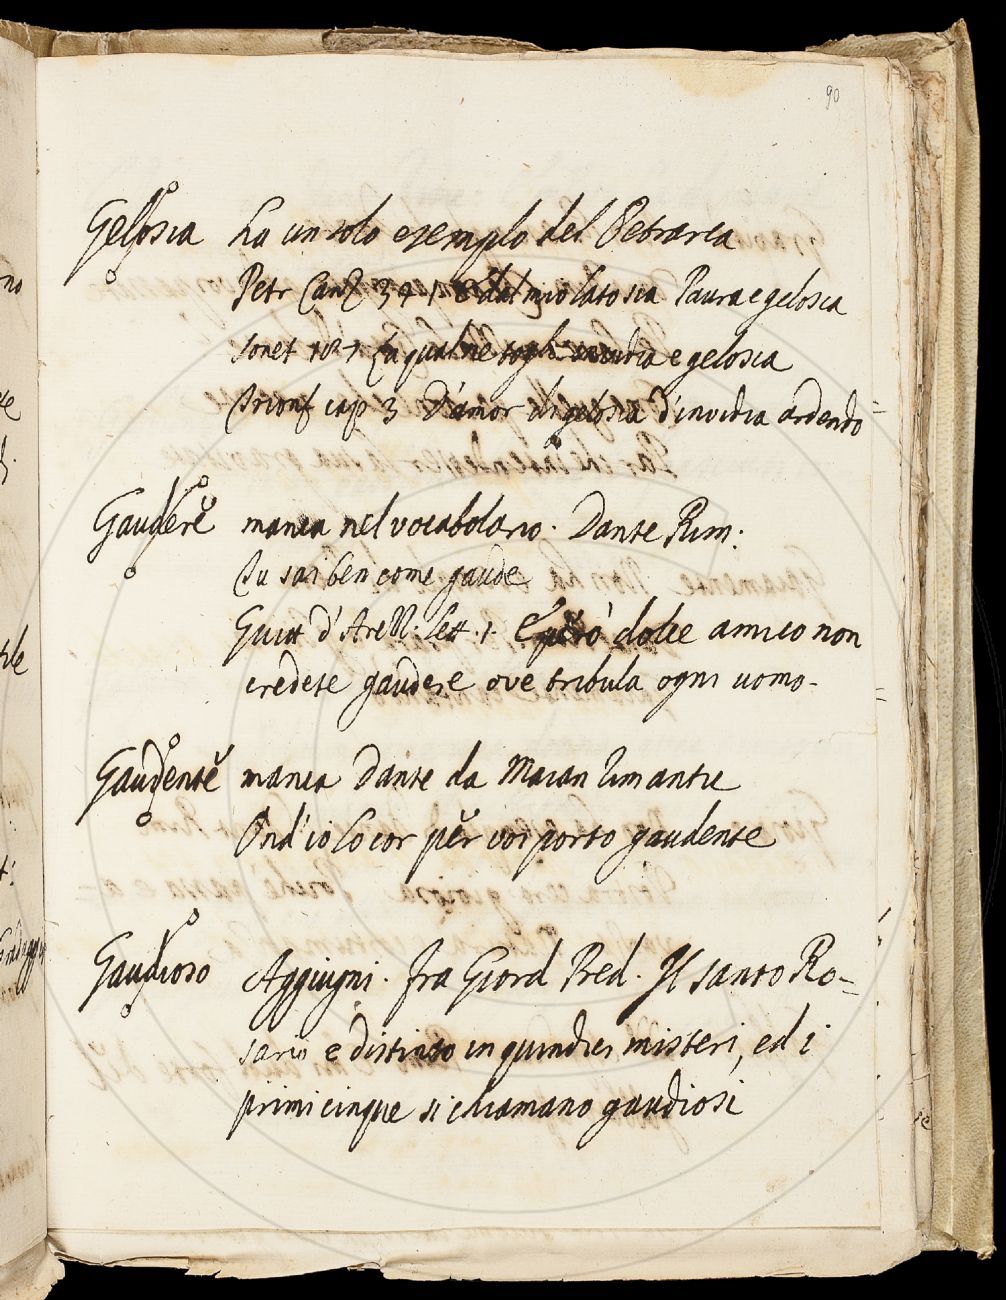 90
Gelosia ha un solo esemplo del Petrarca
Petr Canz 34. 1. dal mio lato sia Paura e gelosia
Sonet La qual ne toglie invidia e gelosia
Trionf cap 3 D'amor di gelosia d'invidia ardendo
Gaudere manca nel vocabolario. Dante Rim.
Tu sai ben come gaude
Guitt d'Arezz. lett. 1. E però dolce amico non
credete gaudere ove tribula ogni uomo.
Gaudente manca Dante da Maian
Ond'io lo cor per voi porto gaudente
Gaudioso Aggiugni. fra Giord Pred. Il santo Ro=
sario e distinto in quindici misteri, ed i
primi cinque si chiamano gaudiosi